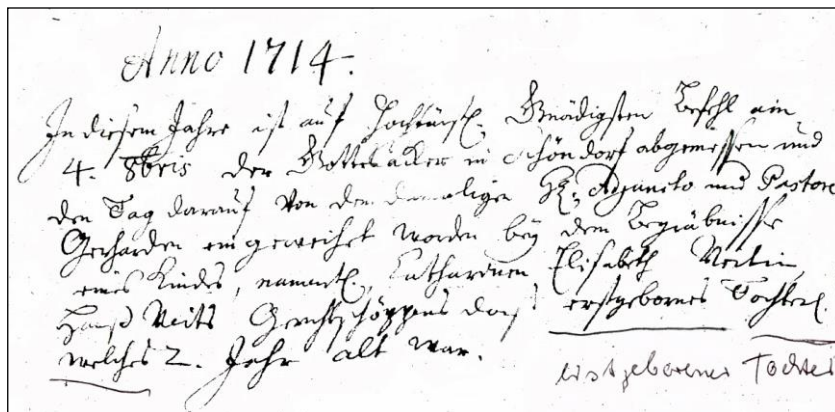 Anno 1714.
In diesem Jahre ist auf Hochfürstl. Gnädigsten Befehl am
4. 8bris der Gottesacker in Schöndorf abgemessen und
den Tag darauf von dem damaligen H. Adjuncto und Pastore
Gerharden eingeweihet worden bey dem Begräbnisse
eines Kindes, namentl. Catharinen Elisabeth Veitin,
Hanß Veits Gerichtschöppens das. erstgebornes Töchterl.
welches 2. Jahr alt war.
erstgeborenes Tochter